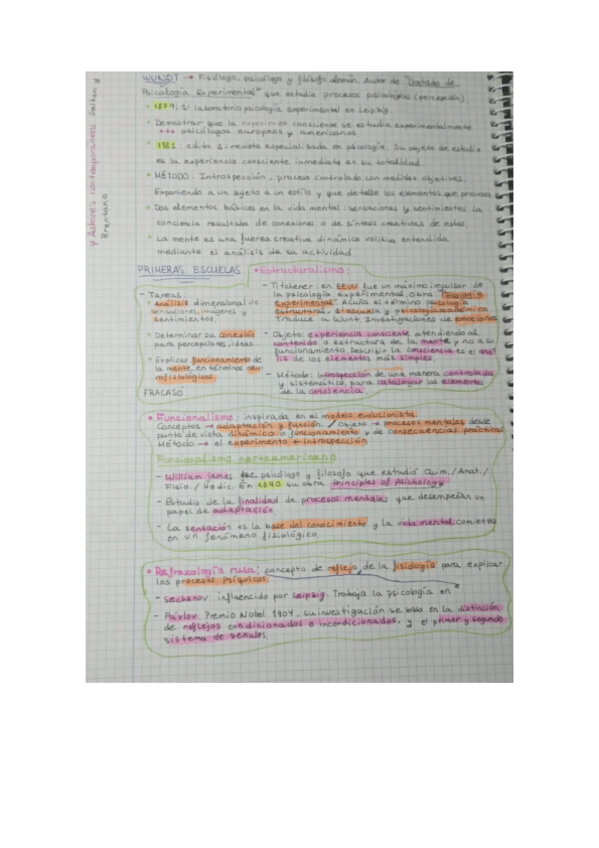 WUNDT → Fisiólogo, psicólogo y filósofo alemán. Autor de "Tratado de
Psicología Experimental" que estudia procesos psicológicos (percepción)
• 1879: 1º laboratorio psicología experimental en Leipzig.
• Demostrar que la experiencia consciente se estudia experimentalmente
psicólogos europeos y americanos
• 1881: edita 1ª revista especializada en psicología. Su objeto de estudio
es la experiencia consciente inmediata en su totalidad
• MÉTODO: Introspección, proceso controlado con medidas objetivas.
Exponiendo a un sujeto a un estilo y que detalle los elementos que
• Dos elementos básicos en la vida mental: sensaciones y sentimientos. La
conciencia resultado de conexiones o de síntesis creativas de estos.
• La mente es una fuerza creativa dinámica volitiva entendida
mediante el análisis de su actividad
y Autores contemporáneos Galton y
Brentano
PRIMERAS ESCUELAS
• Estructuralismo:
- Tareas:
• análisis dimensional de
sensaciones, imágenes y
sentimientos.
• Determinar su conexión
para percepciones, ideas
• Explicar funcionamiento de
la mente, en términos neu-
rofisiológicos
FRACASO
- Titchener: en EEUU fue un máximo impulsor de
la psicología experimental. Obra "Psicología
experimental". Acuña el término psicología
estructural,
Traduce a Wundt. Investigaciones de emociones
- Objeto: experiencia consciente atendiendo al
contenido o estructura de la mente y no a su
funcionamiento. Describir la consciencia es el anál-
is de los elementos más simples
- Método: introspección de una manera controlada
y sistemática, para catalogar los elementos
de la conciencia
• Funcionalismo: inspirada en el modelo evolucionista.
Conceptos → adaptación y función / Objeto → procesos mentales desde
punto de vista dinámico o funcionamiento y de consecuencias prácticas
Método → el experimento + introspección
Funcionalismo norteamericano
- William James fue psicólogo y filósofo que estudió Quím./Anat./
Fisio./Medic. En 1890 su obra Principles of Psichology
- Estudio de la finalidad de procesos mentales que desempeñan un
papel de adaptación
- La sensación es la base del conocimiento y la vida mental comienza
en un fenómeno fisiológico
• Reflexología rusa: concepto de reflejo de la fisiología para explicar
los procesos psíquicos.
- Sechenov: influencido por Leipzig. Trabaja la psicología en
- Pavlov. Premio Nobel 1904, su investigación se basa en la distinción
de reflejos condisionados e incordicionados. y el primer y segundo
sistema de señales.